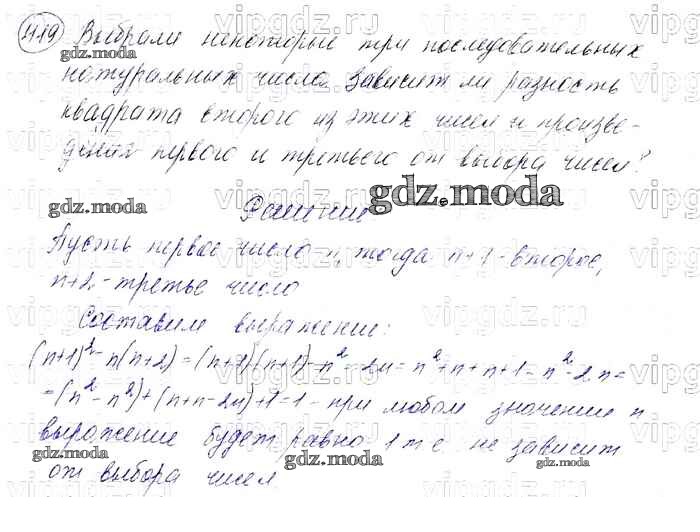 11.19 Выбрали некоторые три последовательных
натуральных числа. Зависит ли разность
квадрата второго из этих чисел и произве-
дения первого и третьего от выбора чисел?
Решение
Пусть первое число n, тогда n+1 - второе,
n+2 - третье число
Составим выражение:
(n+1)²- n(n+2) = (n+1)(n+1) - n² - 2n = n² + n + n + 1 = n² - 2n =
= (n² - n²) + (n+n - 2n) + 1 = 1 - при любом значении n
выражение будет равно 1 т.е. не зависит
от выбора чисел
gdz.moda
vipgdz.ru